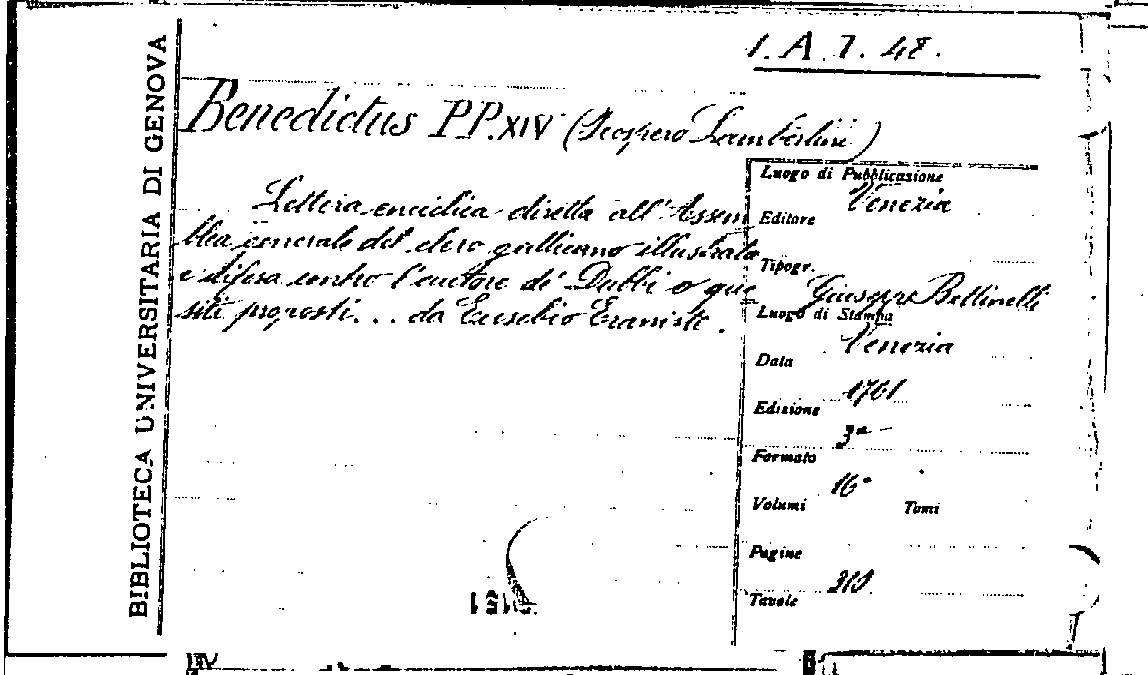 1. A. 7. 48.
BIBLIOTECA UNIVERSITARIA DI GENOVA
Benedictus PP. XIV (Prospero Lambertini)
Lettera enciclica diretta all'Assem
blea generale del clero gallicano illustrata
e difesa contro l'autore de' Dubbi o que
siti proposti... da Eusebio Eraniste.
Luogo di Pubblicazione
Venezia
Editore
Tipogr.
Giuseppe Bettinelli
Luogo di Stampa
Venezia
Data
1761
Edizione
3ª
Formato
16°
Volumi Tomi
Pagine
Tavole